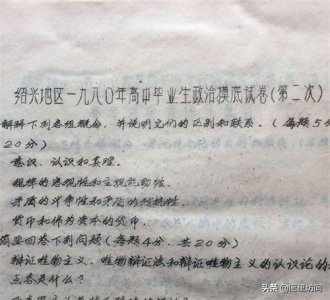 绍兴地区一九八〇年高中毕业生政治摸底试卷(第二次)
解释下列各组概念,并说明它们的区别和联系。(每题5分
20分)
意识、认识和真理。
规律的客观性和主观能动性。
矛盾的斗争性和矛盾的对抗性。
货币和作为资本的货币。
简要回答下列问题(每题4分,共20分)
辩证唯物主义、唯物辩证法和辩证唯物主义的认识论的
三者是什么?
头条 @底层坊间